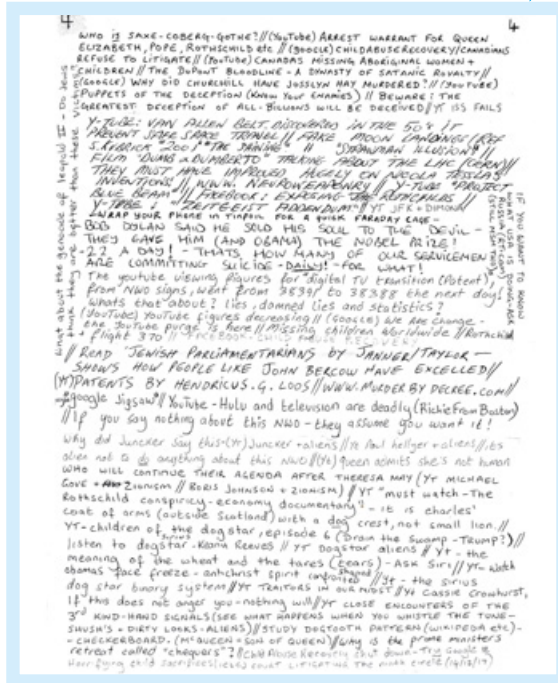 4 4
WHO IS SAXE-COBERG-GOTHE?//(YouTube) ARREST WARRANT FOR QUEEN
ELIZABETH, POPE, ROTHSCHILD etc // (google) CHILDABUSERECOVERY/CANADIANS
REFUSE TO LITIGATE//(YouTube) CANADAS MISSING ABORIGINAL WOMEN +
CHILDREN // THE DUPONT BLOODLINE - A DYNASTY OF SATANIC ROYALTY//
(GOOGLE) WHY DID CHURCHILL HAVE JOSSLYN HAY MURDERED?//(YOUTUBE)
PUPPETS OF THE DECEPTION (KNOW YOUR ENEMIES) // BEWARE: THE
GREATEST DECEPTION OF ALL-BILLIONS WILL BE DECEIVED//YT ISS FAILS
Y-TUBE: VAN ALLEN BELT DISCOVERED IN THE 50s IT
PREVENT SPACE TRAVEL // FAKE MOON LANDINGS (REF
S.KUBRICK "2001" "THE SHINING" // "STRAWMAN ILLUSION"/
FILM "DUMB & DUMBERTO" TALKING ABOUT THE LHC (CERN)//
THEY MUST HAVE IMPROVED HUGELY ON NICOLA TESLAS
INVENTIONS // WWW. NEUROWEAPONRY // Y-TUBE "PROJECT
BLUE BEAM" // FACEBOOK: EXPOSING THE ROTHCHILDS//
Y-TUBE: "ZEITGEIST ADDENDUM"//YT JFK + DIMONA
WRAP YOUR PHONE IN TINFOIL FOR A QUICK FARADAY CAGE-
BOB DYLAN SAID HE SOLD HIS SOUL TO THE DEVIL-
THEY GAVE HIM (AND OBAMA) THE NOBEL PRIZE!
-22 A DAY! - THATS HOW MANY OF OUR SERVICEMEN
ARE COMMITTING SUICIDE-DAILY!-FOR WHAT!
The youtube viewing figures for "digital TV transition (Patent)",
from NWO signs, went from 38391 to 38388 the next day!
Whats that about? lies, damned lies and statistics?
(YouTube) YouTube figures decreasing//(GOOGLE) We Are Change-
the YouTube purge is here//Missing children worldwide//Rothchild
+ flight 370 // FACEBOOK-CHILD ABUSE RECOVERY
// READ 'JEWISH PARLIAMENTARIANS BY JANNER/TAYLOR-
SHOWS HOW PEOPLE LIKE JOHN BERCOW HAVE EXCELLED//
(YT)PATENTS BY HENDRICUS.G.LOOS//WWW.MURDER BY DECREE.com//
google Jigsaw//YouTube-Hulu and television are deadly (RichieFromBoston)
//If you say nothing about this NWO-they assume you want it!
Why did Juncker say this-(YT)Juncker+aliens//Yt Paul hellyer+aliens//its
alien not to do anything about this NWO//(Yt) Queen admits she's not human
WHO WILL CONTINUE THEIR AGENDA AFTER THERESA MAY (YT MICHAEL
GOVE + ZIONISM // BORIS JOHNSON + ZIONISM) // YT "must watch-The
Rothschild conspiricy-economy documentary" - it is charles'
coat of arms (outside Scotland) with a dog crest, not small lion.//
YT-children of the dogstar, episode 6 (Drain the Swamp-TRUMP?)//
listen to dogstar-Keanu Reeves // YT Dogstar aliens // Yt-the
meaning of the wheat and the tares (tears)-Ask Sir,//YT-Watch
obamas face freeze-antichrist spirit confronted//Yt-the sirius
dog star binary system//YT TRAITORS IN OUR MIDST//Yt Cassie Crowhurst,
If this does not anger you-nothing will//YT CLOSE ENCOUNTERS OF THE
3RD KIND-HAND SIGNALS(SEE WHAT HAPPENS WHEN YOU WHISTLE THE TUNE-
SHUSH'S + DIRTY LOOKS-ALIENS)//STUDY DOGTOOTH PATTERN(WIKIPEDIA etc)-
-CHECKERBOARD.-(MCQUEEN=SON OF QUEEN)//Why is the prime ministers
retreat called "chequers"?//Child Abuse Recovery shut down-Try Google
Horrifying child sacrifices
What about the genocide of leopold II - Do Jews
think they are better than these victims?
IF YOU WANT TO KNOW
WHAT USA IS DOING-ASK